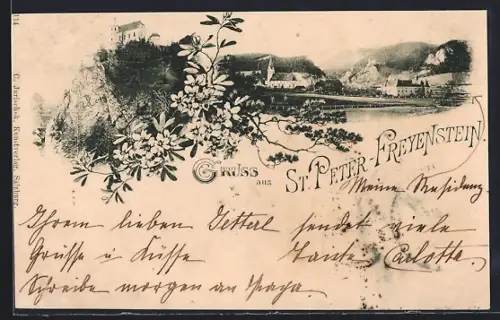 114
C. Jurischek, Kunstverlag, Salzburg.
Gruss aus
ST. PETER-FREYENSTEIN.
Meine Residenz
Ihrem lieben Jetterl sendet viele
Grüsse u Küsse Tante Carlotta.
Schreibe morgen an Papa.